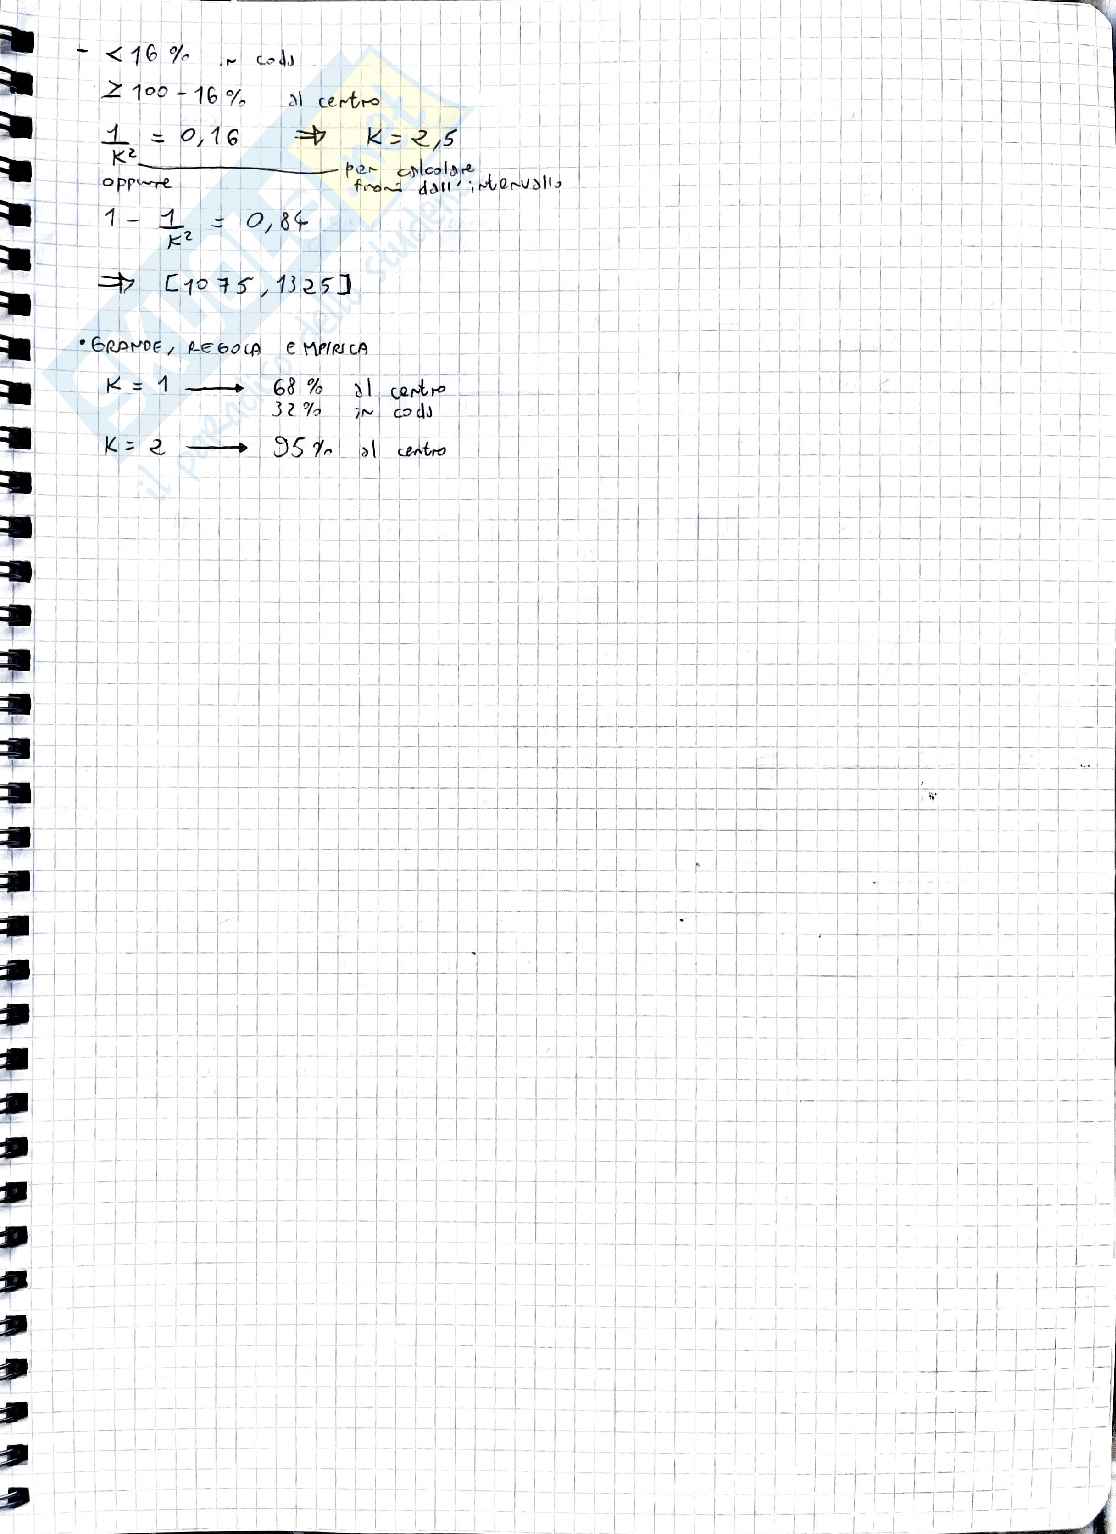 - < 16 % in coda
≥ 100 - 16 % al centro
1/K² = 0,16 ⇒ K = 2,5
per calcolare
fuori dall'intervallo
oppure
1 - 1/K² = 0,84
⇒ [1075, 1325]
• GRANDE, REGOLA EMPIRICA
K = 1 → 68 % al centro
32 % in coda
K = 2 → 95 % al centro